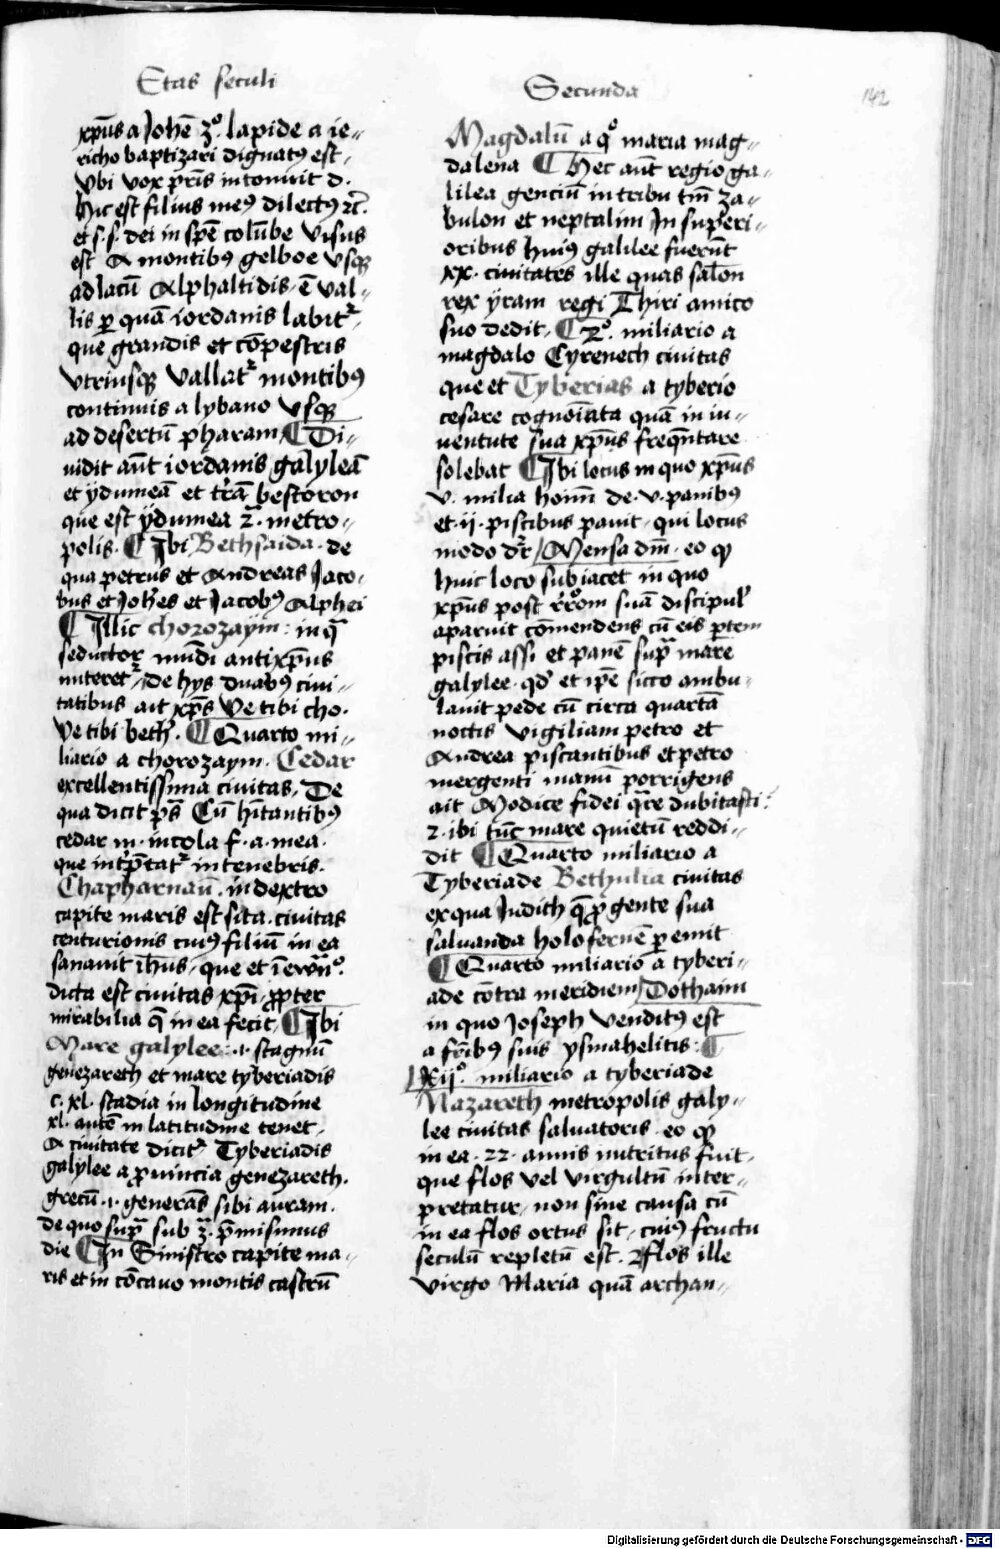 Etas seculi
Secunda
142
xp̄us a Johē 3º. lapide a ie-
richo baptizari dignatꝰ est,
Vbi vox pr̄is intonuit d.
Hic est filius meꝰ dilectꝰ ⁊c̄.
et s. s. dei in sp̄e colūbe visus
est A montibꝰ gelboe vsqꝫ
ad lacū Alphaltidis, ē val-
lis ꝑ quā iordanis labit᷑,
que grandis et cōpestris
vtriusqꝫ vallat᷑ montibꝰ
continuis a lybano vsqꝫ
ad desertū pharam ¶ Di-
uidit aūt iordanis galyleā
et ydumeā et tr̄ā bestoron
que est ydumea 2ª. metro-
polis. ¶ Ibi Bethsaida. de
qua petrus et Andreas Jaco-
bus et Joh̄es et Jacobꝰ Alphei
¶ Illic chorozaÿm: in qª
seductor mūdi antixp̄us
nutriret᷑, de hys duabꝰ ciui-
tatibus ait xp̄s Ve tibi cho.
Ve tibi beth̄. ¶ Quarto mi-
liario a chorozaym. Cedar
excellentissima ciuitas, De
qua dicit p̄s Cū hītantibꝰ
cedar in. incola f. a. mea.
que int̄p̄tat᷑ in tenebris.
Chapharnaū. in dextro
capite maris est sita. ciuitas
centurionis cuiꝰ filiū in ea
sanauit ih̄us, que et
dicta est ciuitas xp̄i. ꝓpter
mirabilia q̄ in ea fecit, ¶ Ibi
Mare galylee: .i. stagnū
genezareth et mare tyberiadis
c. xl. stadia in longitudine
xl. autē in latitudine tenet,
A ciuitate dicit᷑ Tyberiadis
galylee a ꝓuincia genezareth.
grecū .i. generās sibi auram.
de quo supª sub 3ª. p̄misimus
die ¶ In Sinistro capite ma-
ris et in cōcauo montis castrū
Magdalū a qº maria mag-
dalena ¶ Hec aūt regio ga-
lilea genciū in tribu tm̄ za-
bulon et neptalim In superi-
oribus huiꝰ galilee fuerūt
xx. ciuitates ille quas salōn
rex yram regi Thiri amico
suo dedit, ¶ 2º. miliario a
magdalo Cyrenech ciuitas
que et Tyberias a tyberio
cesare cognoīata quā in iu-
uentute sua xp̄us freqn̄tare
solebat ¶ Ibi locus in quo xp̄us
v. milia hoīm de .v. panibꝰ
et .ij. piscibus pauit, qui locus
modo dr̄, Mensa dm̄, eo qꝫ
huic loco subiacet in quo
xp̄us post suā discipul᷑
aparuit cōmendens cū eis ꝑtem
piscis assi et panē supª mare
galylee. qd̄ et ip̄e sicco ambu-
lauit pede cū circa quartā
noctis vigiliam petro et
Andrea piscantibus et petro
mergenti manū porrigens
ait Modice fidei qª̄re dubitasti?
⁊ ibi tūc mare quietū reddi-
dit ¶ Quarto miliario a
Tyberiade Bethulia ciuitas
ex qua Judith q̄ ꝓ gente sua
saluanda holofernē ꝑemit
¶ Quarto miliario a tyberi-
ade cōtra meridiem Dothaim
in quo Joseph venditꝰ est
a fr̄ibꝰ suis ysmahelitis: ¶
xijº. miliario a tyberiade
Nazareth metropolis galy-
lee ciuitas saluatoris. eo qꝫ
in ea .22. annis nutritus fuit,
que flos vel virgultū inter-
pretatur, non sine causa cū
in ea flos ortus sit, cuiꝰ fructu
seculū repletū est. Flos ille
virgo Maria quā archan-
Digitalisierung gefördert durch die Deutsche Forschungsgemeinschaft - DFG